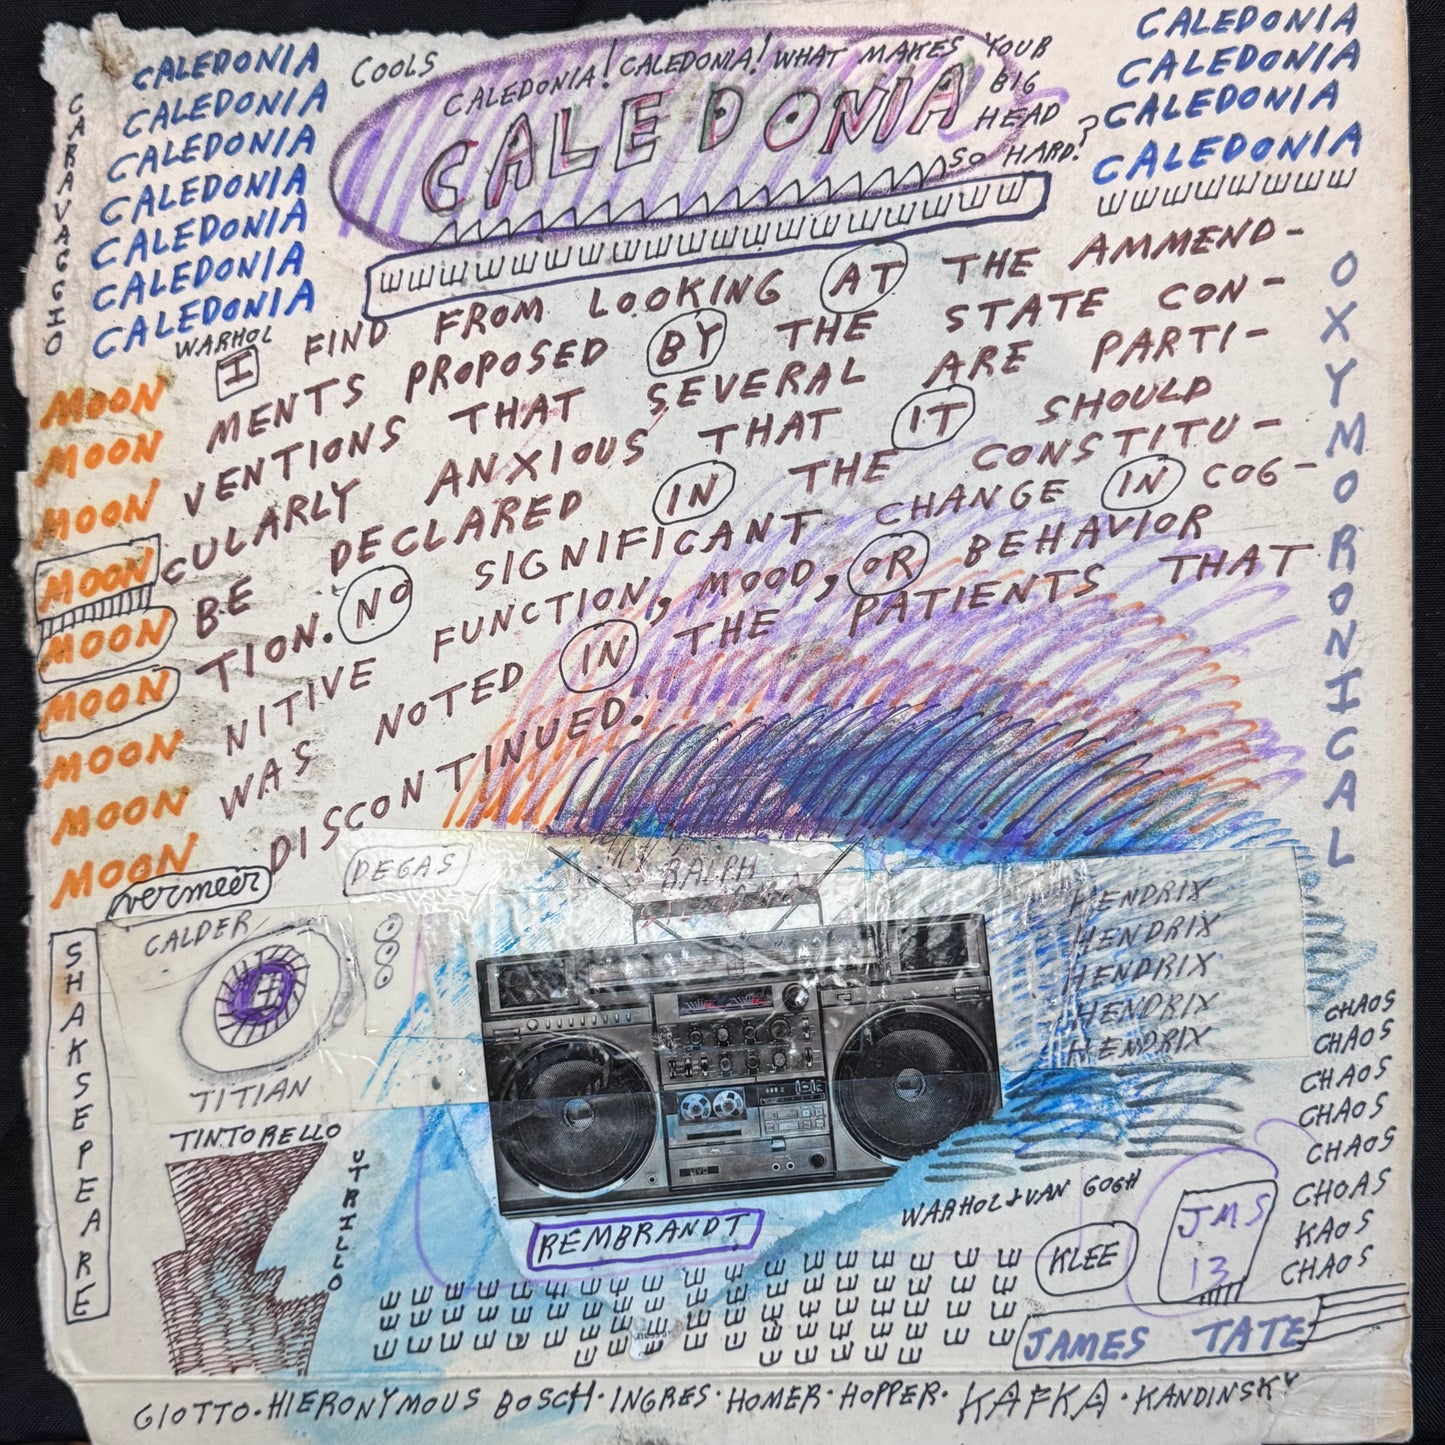 COOLS
CALEDONIA! CALEDONIA! WHAT MAKES YOUR
BIG
HEAD
SO HARD?
CALEDONIA
CALEDONIA
CALEDONIA
CALEDONIA
CALEDONIA
CALEDONIA
CALEDONIA
CALEDONIA
CALEDONIA
CALEDONIA
CALEDONIA
CALEDONIA
CARAVAGGIO
WARHOL
I FIND FROM LOOKING AT THE AMMEND-
MENTS PROPOSED BY THE STATE CON-
VENTIONS THAT SEVERAL ARE PARTI-
CULARLY ANXIOUS THAT IT SHOULD
BE DECLARED IN THE CONSTITU-
TION. NO SIGNIFICANT CHANGE IN COG-
NITIVE FUNCTION, MOOD, OR BEHAVIOR
WAS NOTED IN THE PATIENTS THAT
DISCONTINUED.
MOON
MOON
MOON
MOON
MOON
MOON
MOON
MOON
MOON
OXYMORONICAL
vermeer
DEGAS
RALPH
CALDER
TITIAN
TINTORELLO
SHAKSEPEARE
UTRILLO
HENDRIX
HENDRIX
HENDRIX
HENDRIX
HENDRIX
JVC
REMBRANDT
WARHOL & VAN GOGH
KLEE
JMS
13
CHAOS
CHAOS
CHAOS
CHAOS
CHAOS
CHOAS
KAOS
CHAOS
JAMES TATE
GIOTTO · HIERONYMOUS BOSCH · INGRES · HOMER · HOPPER · KAFKA · KANDINSKY